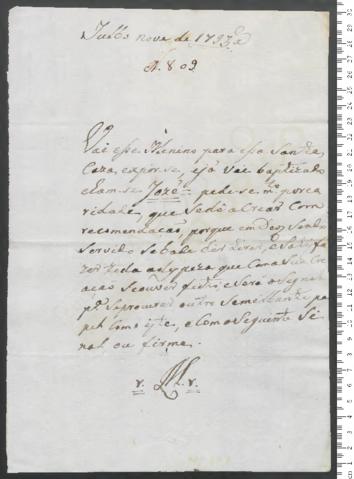 Julho nove de 1793
N. 809
Vai esse Menino para essa Santa
Caza, expor-se, e já vai baptizado
clama-se Jozé = pede-se m.to por ca
ridade, que se dê a Crear Com
recomendação, porque em Deos Sendo
Servido se hade
zer toda a despeza que Com a Sua Cre
ação se ouver feito, e Será o Segnal
outro Semilhante pa
pel Como este, e Como o Seguinte Si
nal ou firma.